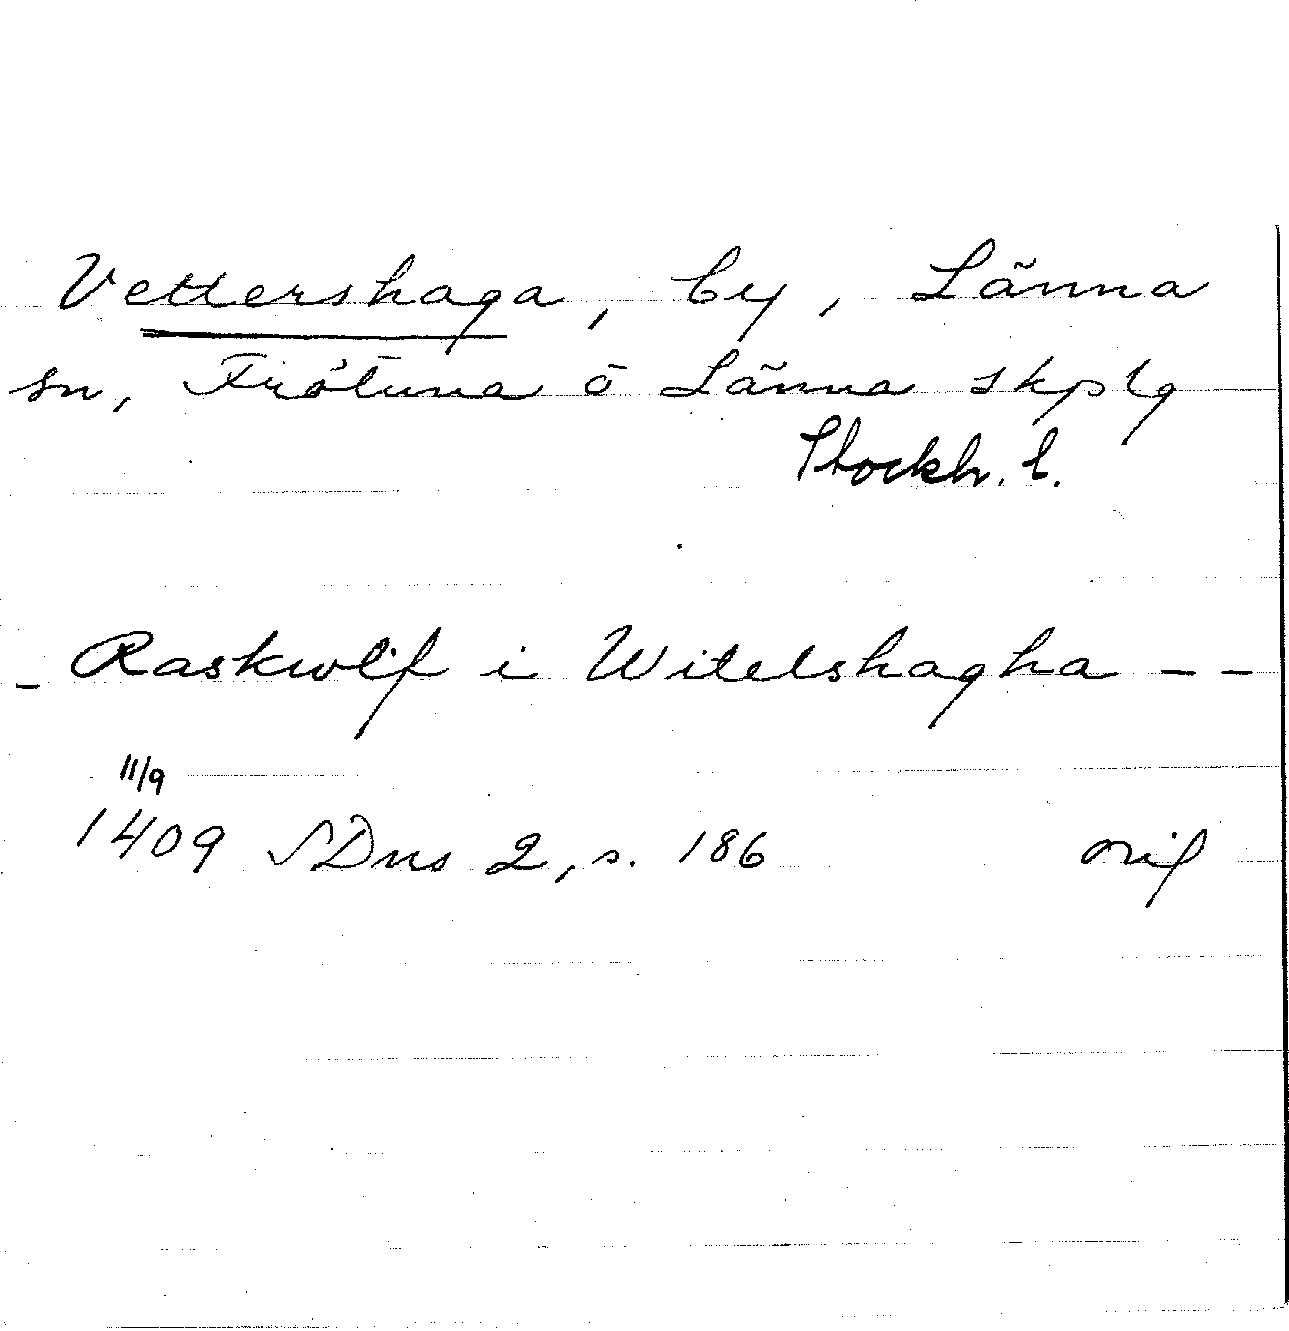 Vettershaga, by, Länna
sn, Frötuna o Länna skplg
Stockh. l.
- Raskwlf i Witelshagha - -
11/9
1409 SDns 2, s. 186 orig